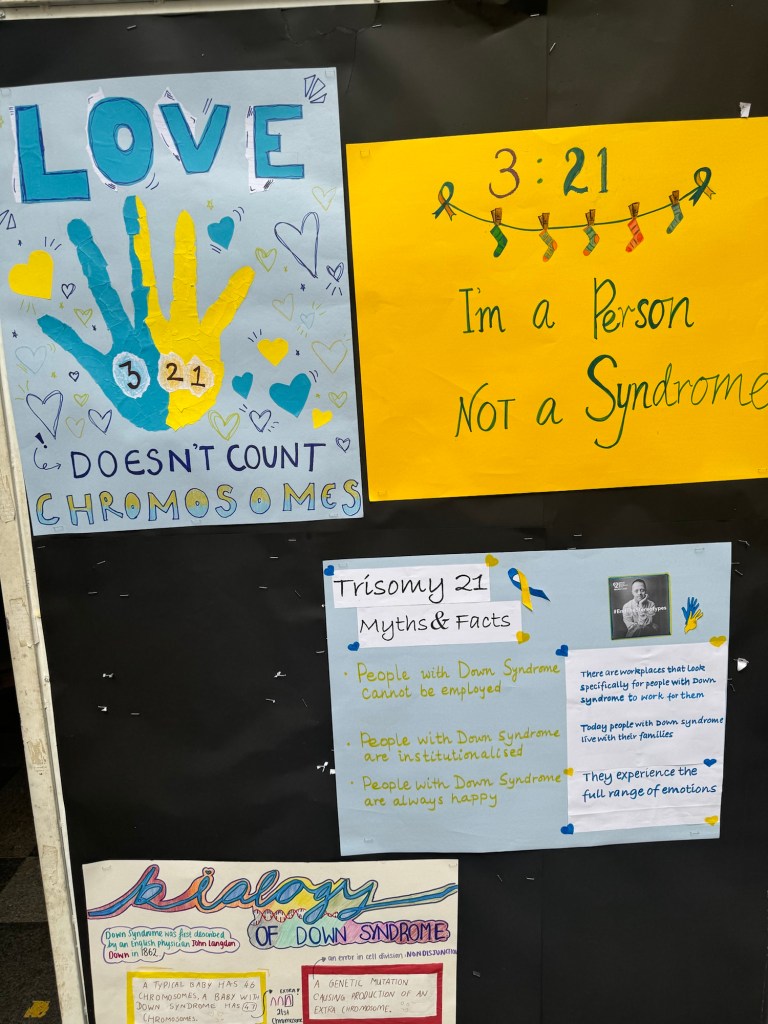 LOVE
3 21
DOESN'T COUNT
CHROMOSOMES
3:21
I'm a Person
NOT a Syndrome
Trisomy 21
Myths & Facts
· People with Down Syndrome
cannot be employed
· People with Down syndrome
are institutionalised
· People with Down Syndrome
are always happy
There are workplaces that look
specifically for people with Down
syndrome to work for them
Today people with Down syndrome
live with their families
They experience the
full range of emotions
biology
OF DOWN SYNDROME
Down Syndrome was first described
by an English physician John Langdon
Down in 1862
→ an error in cell division :NONDISJUNCTION
A TYPICAL BABY HAS 46
CHROMOSOMES, A BABY WITH
DOWN SYNDROME HAS 47
CHROMOSOMES.
EXTRA
21st
Chromosome
A GENETIC MUTATION
CAUSING PRODUCTION OF AN
EXTRA CHROMOSOME.